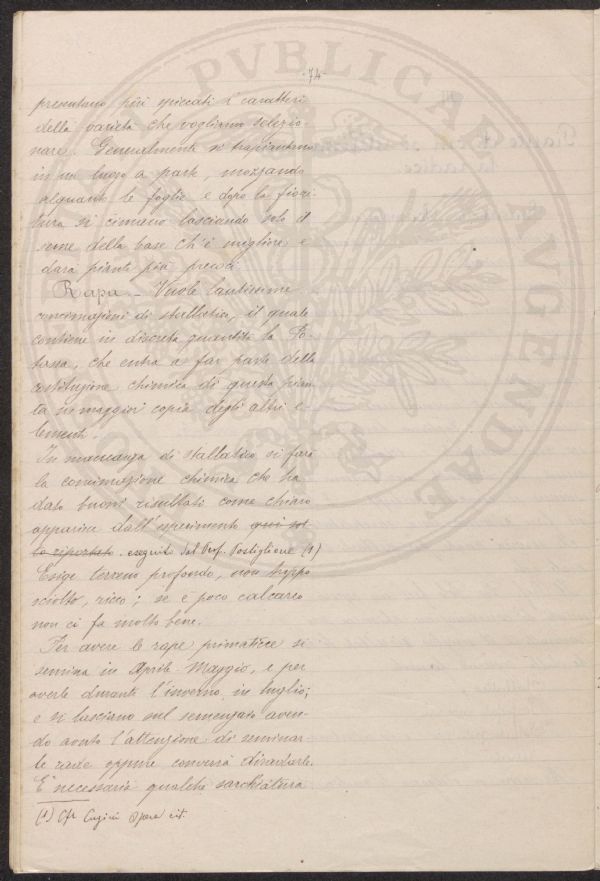 74
presentano più spiccati i caratteri
della varietà che vogliamo selezio-
nare. Generalmente si trapiantano
in un luogo a parte, mozzando
alquanto le foglie e dopo la fiori-
tura si cimano lasciando solo il
seme della base ch'è migliore e
darà piante più precoci.
Rapa - Vuole lautissime
concimazioni di stallatico, il quale
contiene in discreta quantità la Po-
tassa, che entra a far parte della
costituzione chimica di questa pian-
ta in maggior copia degli altri e-
lementi.
In mancanza di stallatico si farà
la concimazione chimica che ha
dato buoni risultati come chiaro
apparisce dall'esperimento qui sot-
to riportato. eseguito dal Prof. Postiglione (1)
Esige terreno profondo, non troppo
sciolto, ricco; se è poco calcareo
non ci fa molto bene.
Per avere le rape primaticce si
semina in Aprile-Maggio, e per
averle durante l'inverno, in luglio;
e si lasciano sul semenzato aven-
do avuto l'attenzione di seminar-
le rade oppure converrà diradarle.
È necessaria qualche sarchiatura
(1) Cfr Cugini Opera cit.
PVBLICAE AVGENDAE